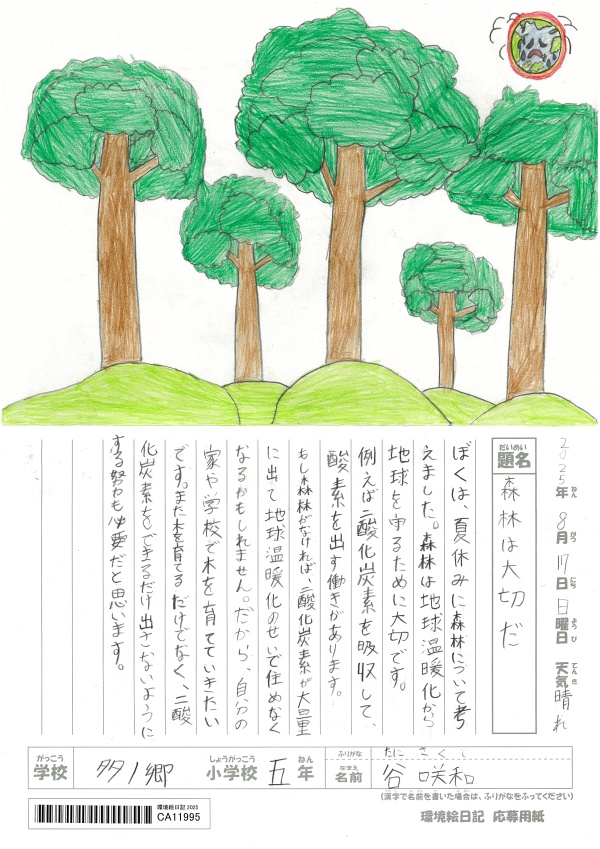 2025年ねん 8月がつ 17日にち 日曜日ようび 天気てんき 晴れ
だいめい
題名
森林は大切だ
ぼくは、夏休みに森林について考
えました。森林は地球温暖化から
地球を守るために大切です。
例えば二酸化炭素を吸収して、
酸素を出す働きがあります。
もし森林がなければ、二酸化炭素が大量
に出て地球温暖化のせいで住めなく
なるかもしれません。だから、自分の
家や学校で木を育てていきたい
です。また木を育てるだけでなく、二酸
化炭素をできるだけ出さないように
する努力も必要だと思います。
がっこう
学校
多ノ郷
しょうがっこう
小学校
五
ねん
年
ふりがな
たに さくと
なまえ
名前
谷 咲和
(漢字で名前を書いた場合は、ふりがなをふってください)
環境絵日記 2025
CA11995
環境絵日記 応募用紙